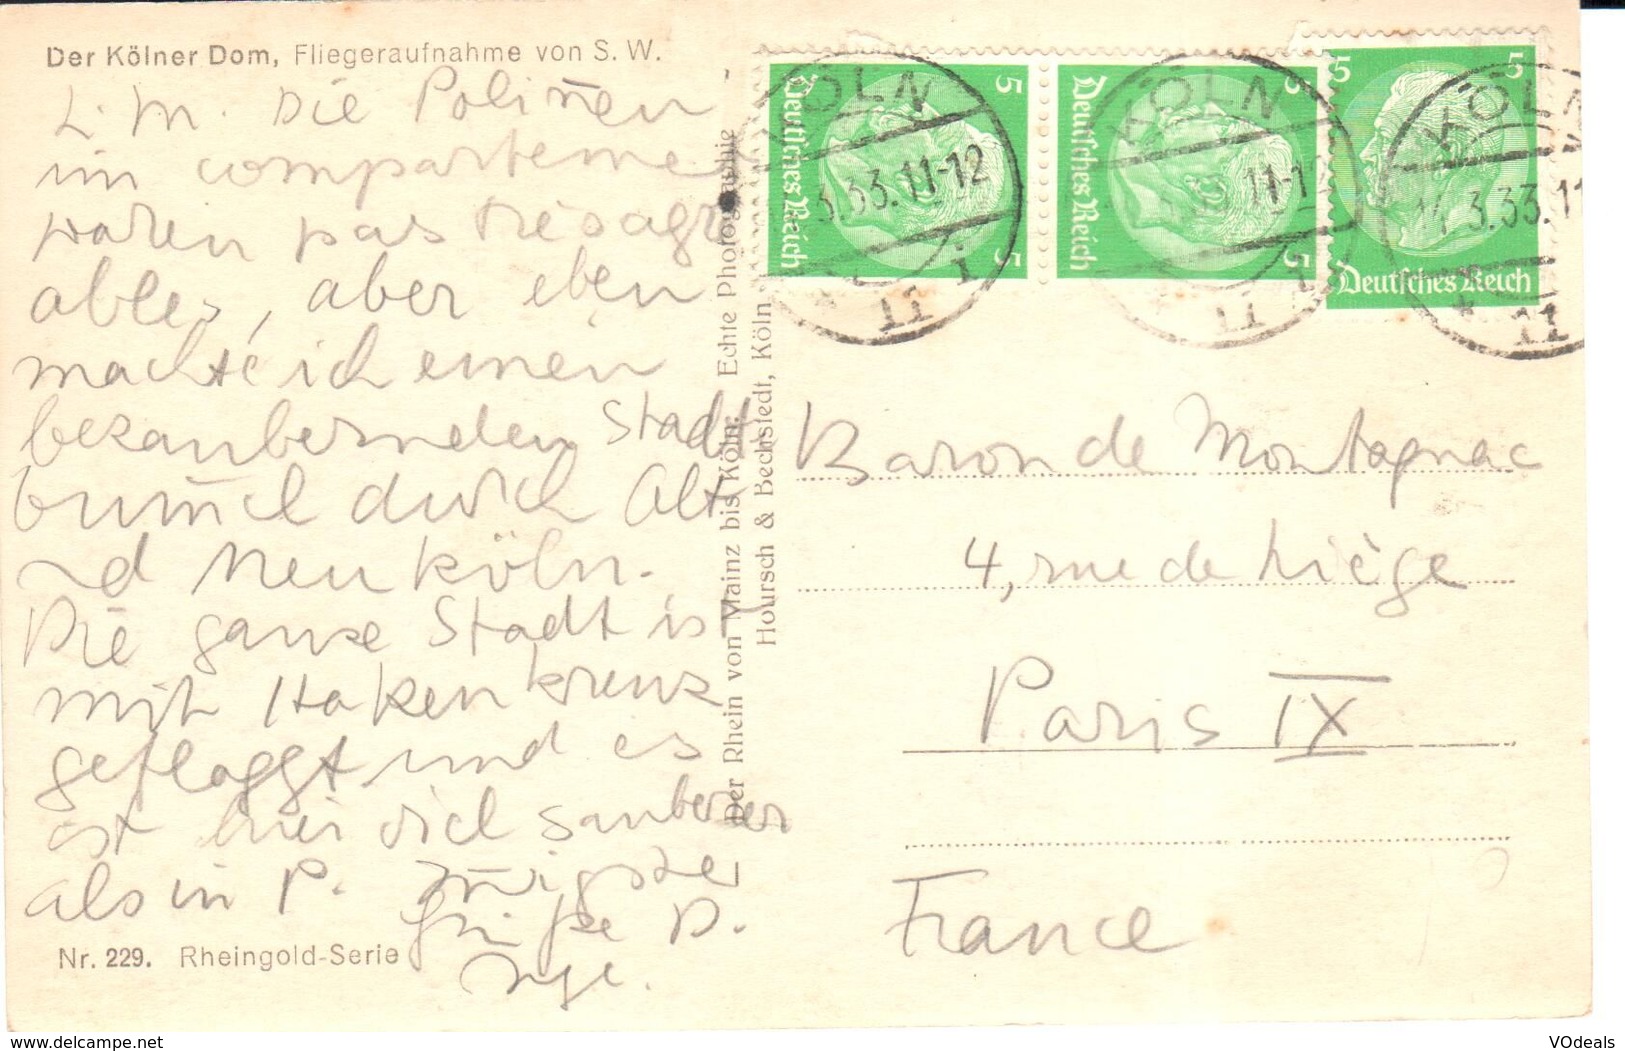 Der Kölner Dom, Fliegeraufnahme von S. W.
L. M. Die Polinen
im comparteme
waren pas désagr
ables, aber eben
machte ich einen
bezaubernden Stadt
bummel durch Alt
und Neu köln.
Die ganze Stadt ist
mit Hakenkreuz
geflaggt und es
ist hier viel sauberer
als in P. Innigste
Grüße D.
Inge.
Nr. 229. Rheingold-Serie
Der Rhein von Mainz bis Köln: Echte Photographie
Hoursch & Bechstedt, Köln
Deutsches Reich
5
5
KÖLN
3.33.11-12
11
Deutsches Reich
5
5
KÖLN
11-1
11
5
5
Deutsches Reich
KÖLN
14.3.33.11
11
Baron de Montagnac
4, rue de Liège
Paris IX
France
www.delcampe.net
VOdeals